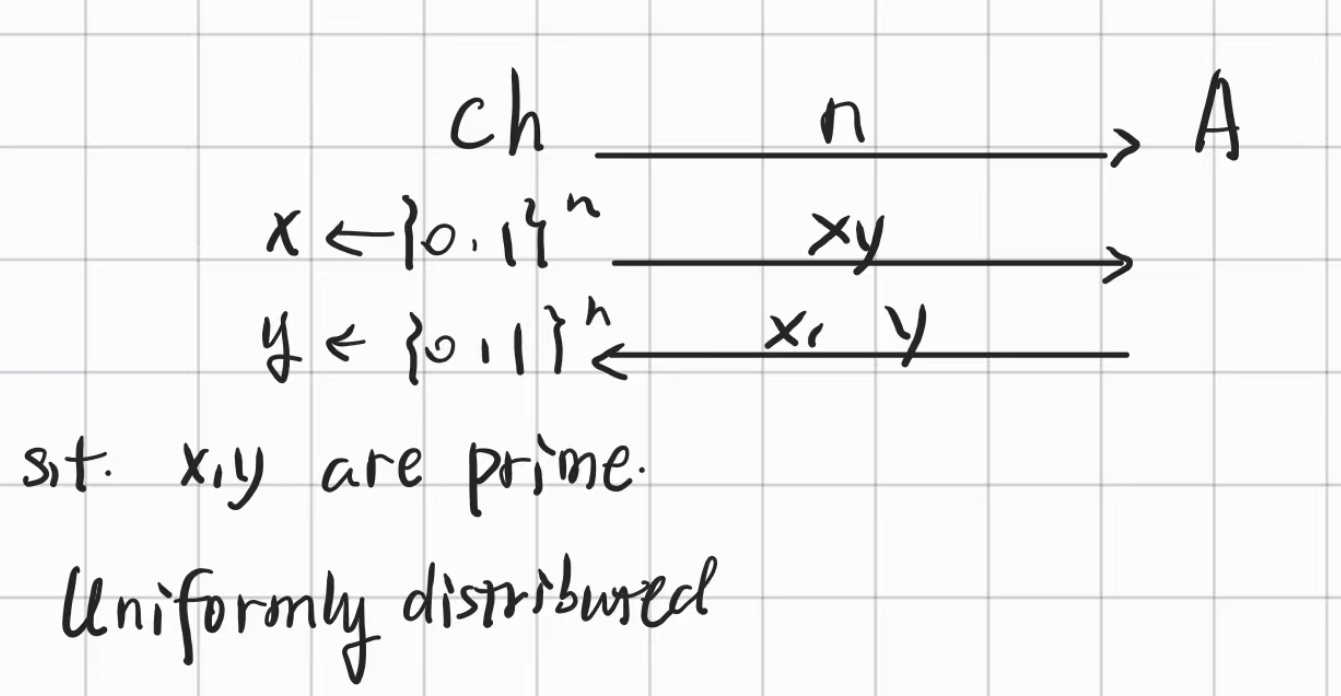 ch n A
x ← {0,1}ⁿ xy
y ← {0,1}ⁿ x, y
s.t. x,y are prime.
Uniformly distributed